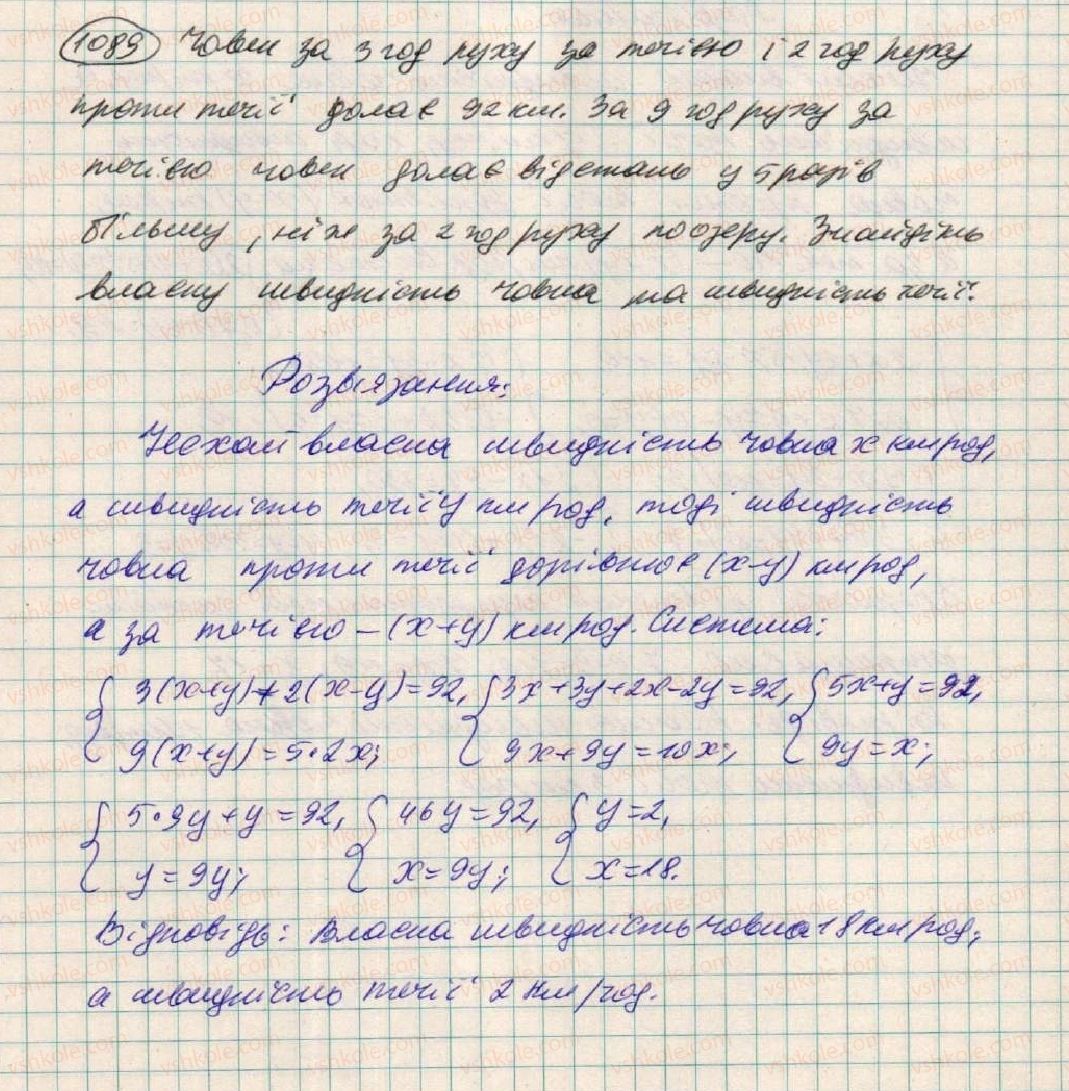 1089 Човен за 3 год руху за течією і 2 год руху
проти течії долає 92 км. За 9 год руху за
течією човен долає відстань у 5 разів
більшу, ніж за 2 год руху по озеру. Знайдіть
власну швидкість човна та швидкість течії.
Розв'язання:
Нехай власна швидкість човна x км/год,
а швидкість течії y км/год, тоді швидкість
човна проти течії дорівнює (x-y) км/год,
а за течією – (x+y) км/год. Система:
{ 3(x+y)+2(x-y)=92, { 3x+3y+2x-2y=92, { 5x+y=92,
9(x+y)=5•2x; 9x+9y=10x; 9y=x;
{ 5•9y+y=92, { 46y=92, { y=2,
y=9y; x=9y; x=18.
Відповідь: Власна швидкість човна 18 км/год,
а швидкість течії 2 км/год.